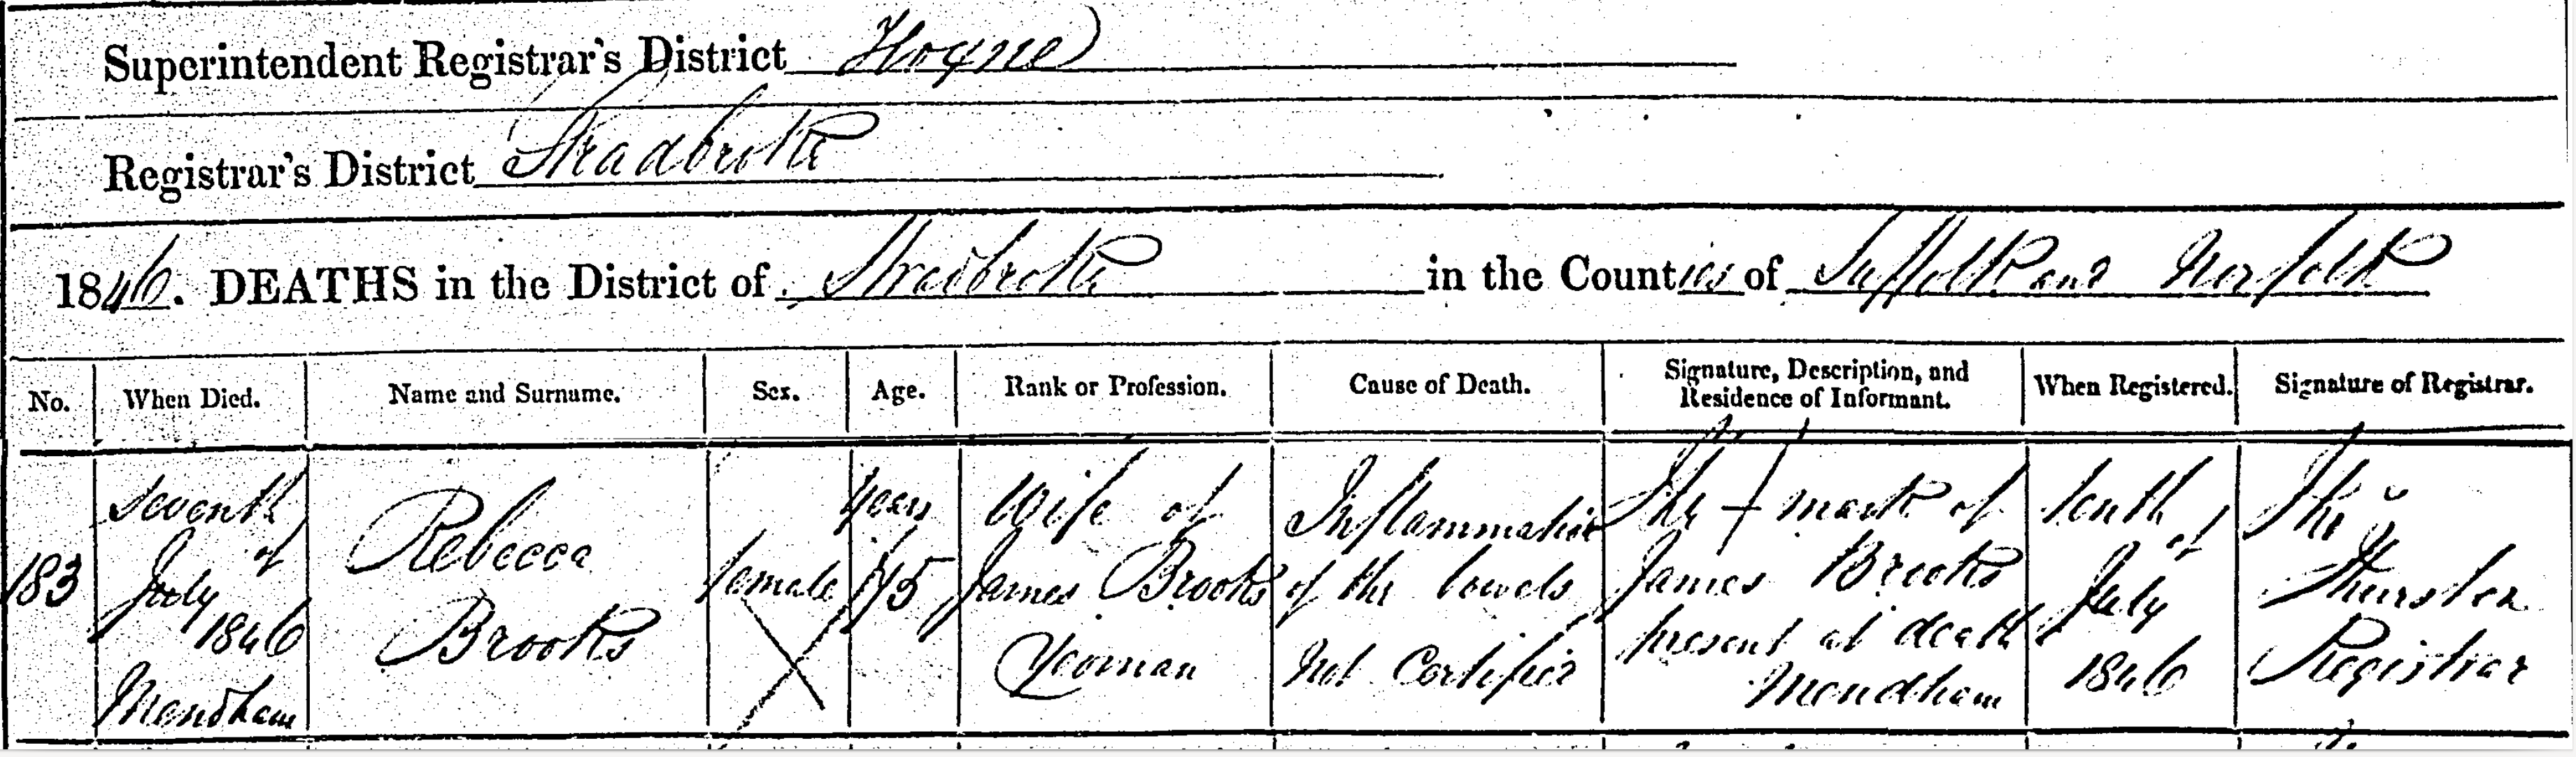 Superintendent Registrar's District Hoxne
Registrar's District Stradbroke
1846. DEATHS in the District of Stradbroke in the Counties of Suffolk and Norfolk
No. When Died. Name and Surname. Sex. Age. Rank or Profession. Cause of Death. Signature, Description, and Residence of Informant. When Registered. Signature of Registrar.
183
seventh
of
July
1846
Mendham
Rebecca
Brooks
female
years
45
Wife of
James Brooks
Yeoman
Inflammation
of the bowels
Not Certified
The + mark of
James Brooks
present at death
Mendham
tenth
of
July
1846
Thurston
Registrar